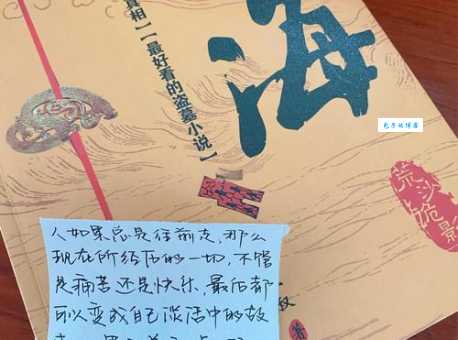 海
真相】【最好看的盗墓小说】
荒沙诡影
人如果总是往前走，那么
现在所经历的一切，不管
是痛苦还是快乐，最后都
可以变成自己谈话中的故
著